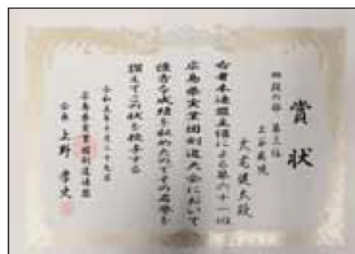 賞状
四段の部 第三位
土谷病院
大定健太殿
右者本連盟主催による第六十一回
広島県実業団剣道大会において
優秀な成績を収めたのでその名誉を
讃えてこの状を授与する
広島県実業団剣道連盟
会長 上野孝史